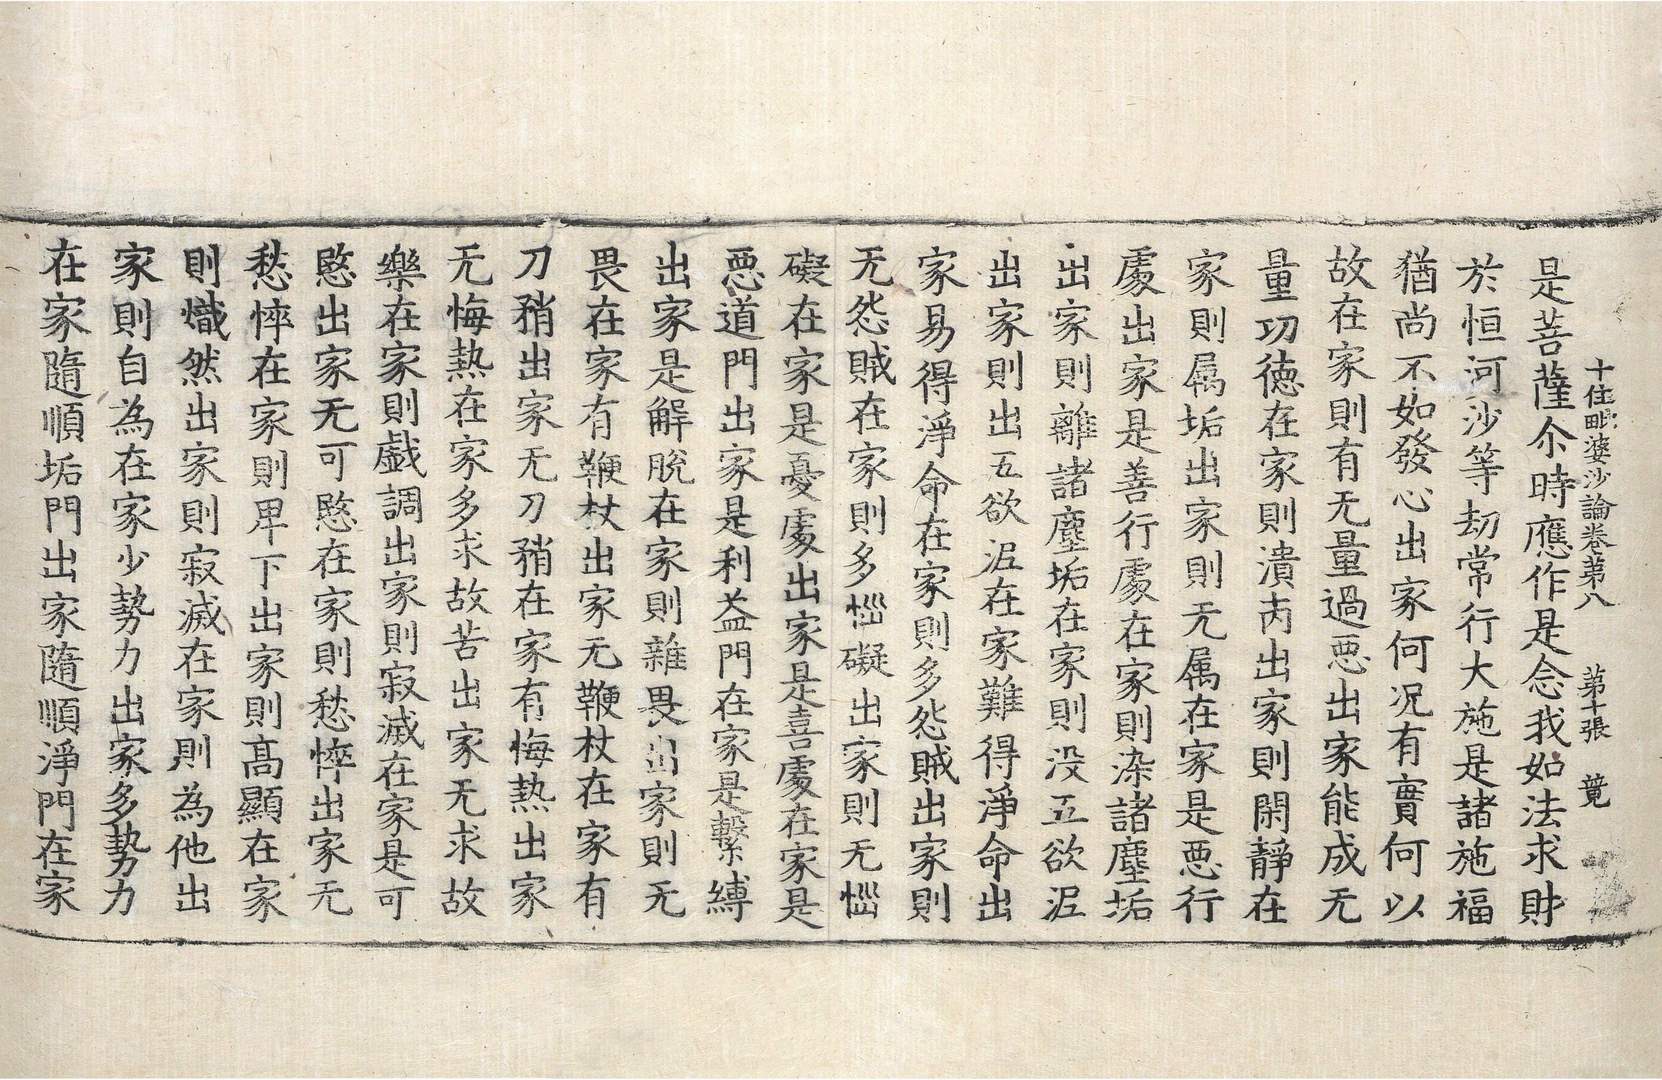 十住毗婆沙論卷第八 第十張 竟
是菩薩尒時應作是念我如法求財
於恒河沙等劫常行大施是諸施福
猶尚不如發心出家何况有實何以
故在家則有无量過惡出家能成无
量功德在家則潰丙出家則閑靜在
家則属垢出家則无属在家是惡行
處出家是善行處在家則染諸塵垢
出家則離諸塵垢在家則没五欲泥
出家則出五欲泥在家難得淨命出
家易得淨命在家則多怨賊出家則
无怨賊在家則多惱礙出家則无惱
礙在家是憂處出家是喜處在家是
惡道門出家是利益門在家是繫縛
出家是解脫在家則雜畏出家則无
畏在家有鞭杖出家无鞭杖在家有
刀矟出家无刀矟在家有悔熱出家
无悔熱在家多求故苦出家无求故
樂在家則戲調出家則寂滅在家是可
愍出家无可愍在家則愁悴出家无
愁悴在家則卑下出家則高顯在家
則熾然出家則寂滅在家則為他出
家則自為在家少勢力出家多勢力
在家隨順垢門出家隨順淨門在家